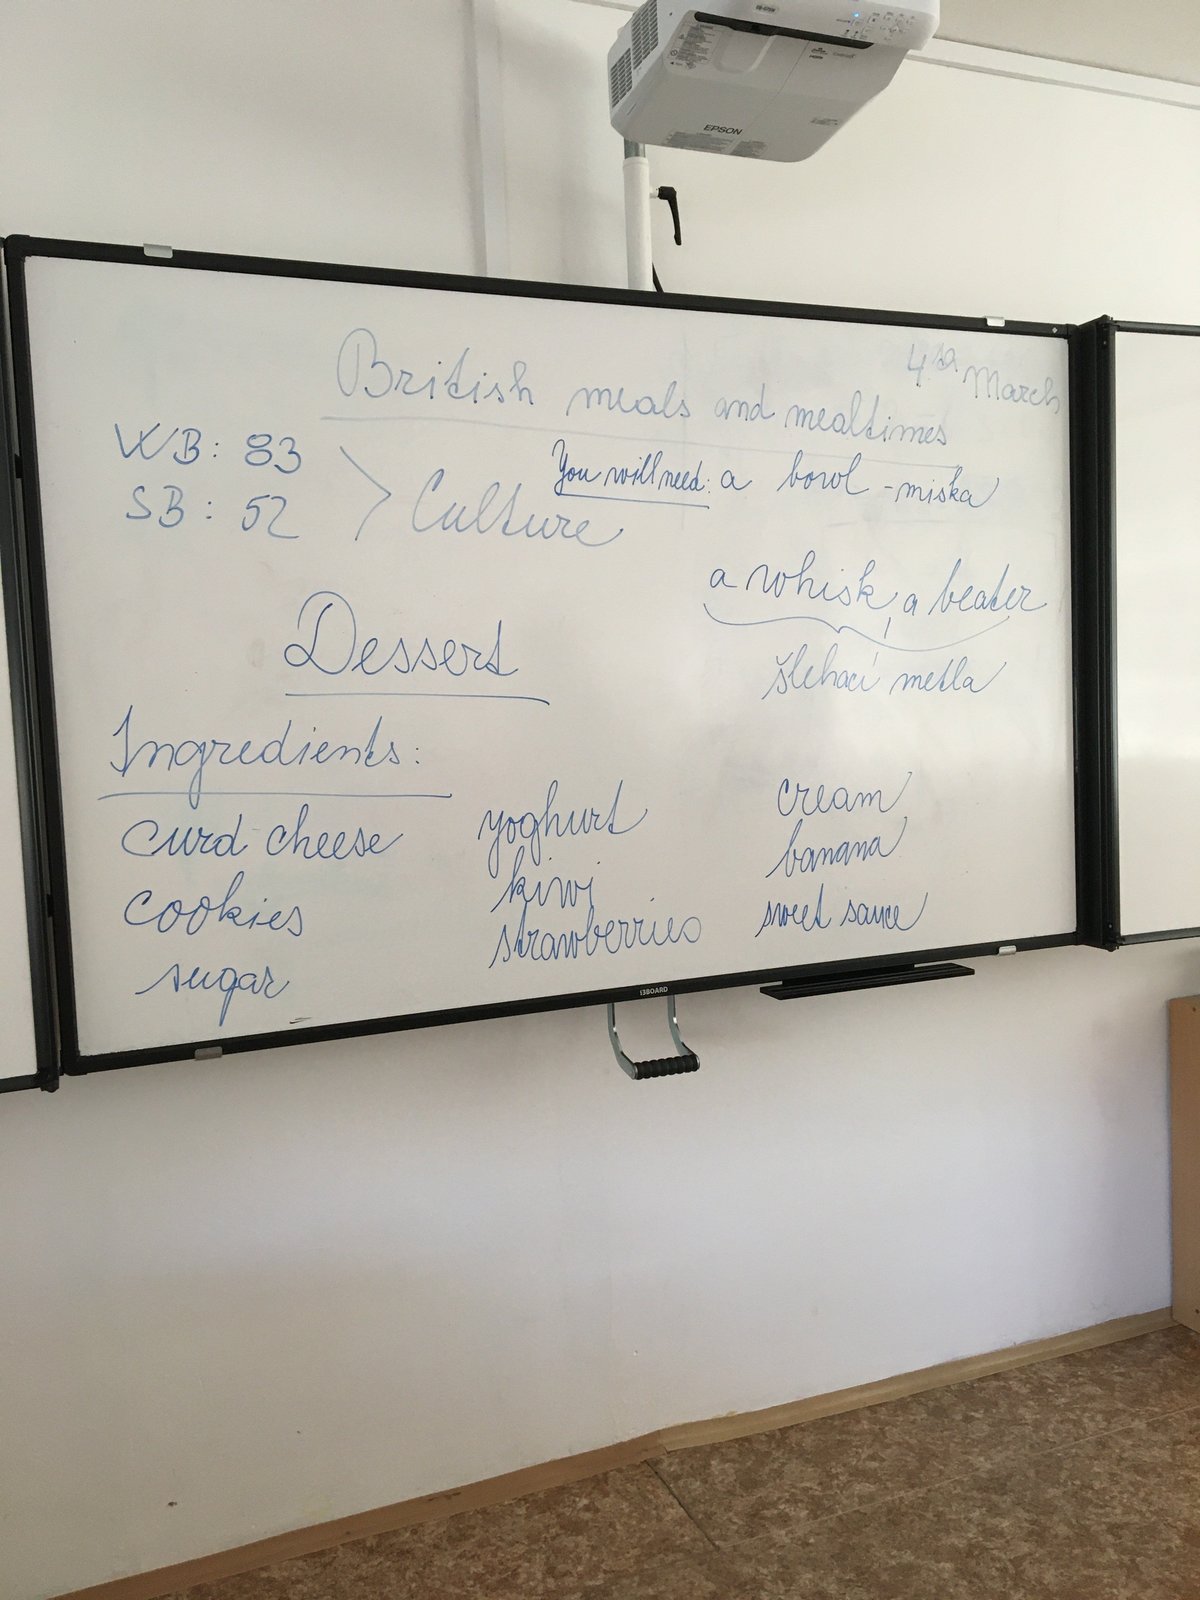 EPSON
4th March
British meals and mealtimes
WB: 83
SB: 52
Culture
You will need: a bowl - miska
a whisk, a beater
šlehací metla
Dessert
Ingredients:
curd cheese
cookies
sugar
yoghurt
kiwi
strawberries
cream
banana
sweet sauce
i3BOARD